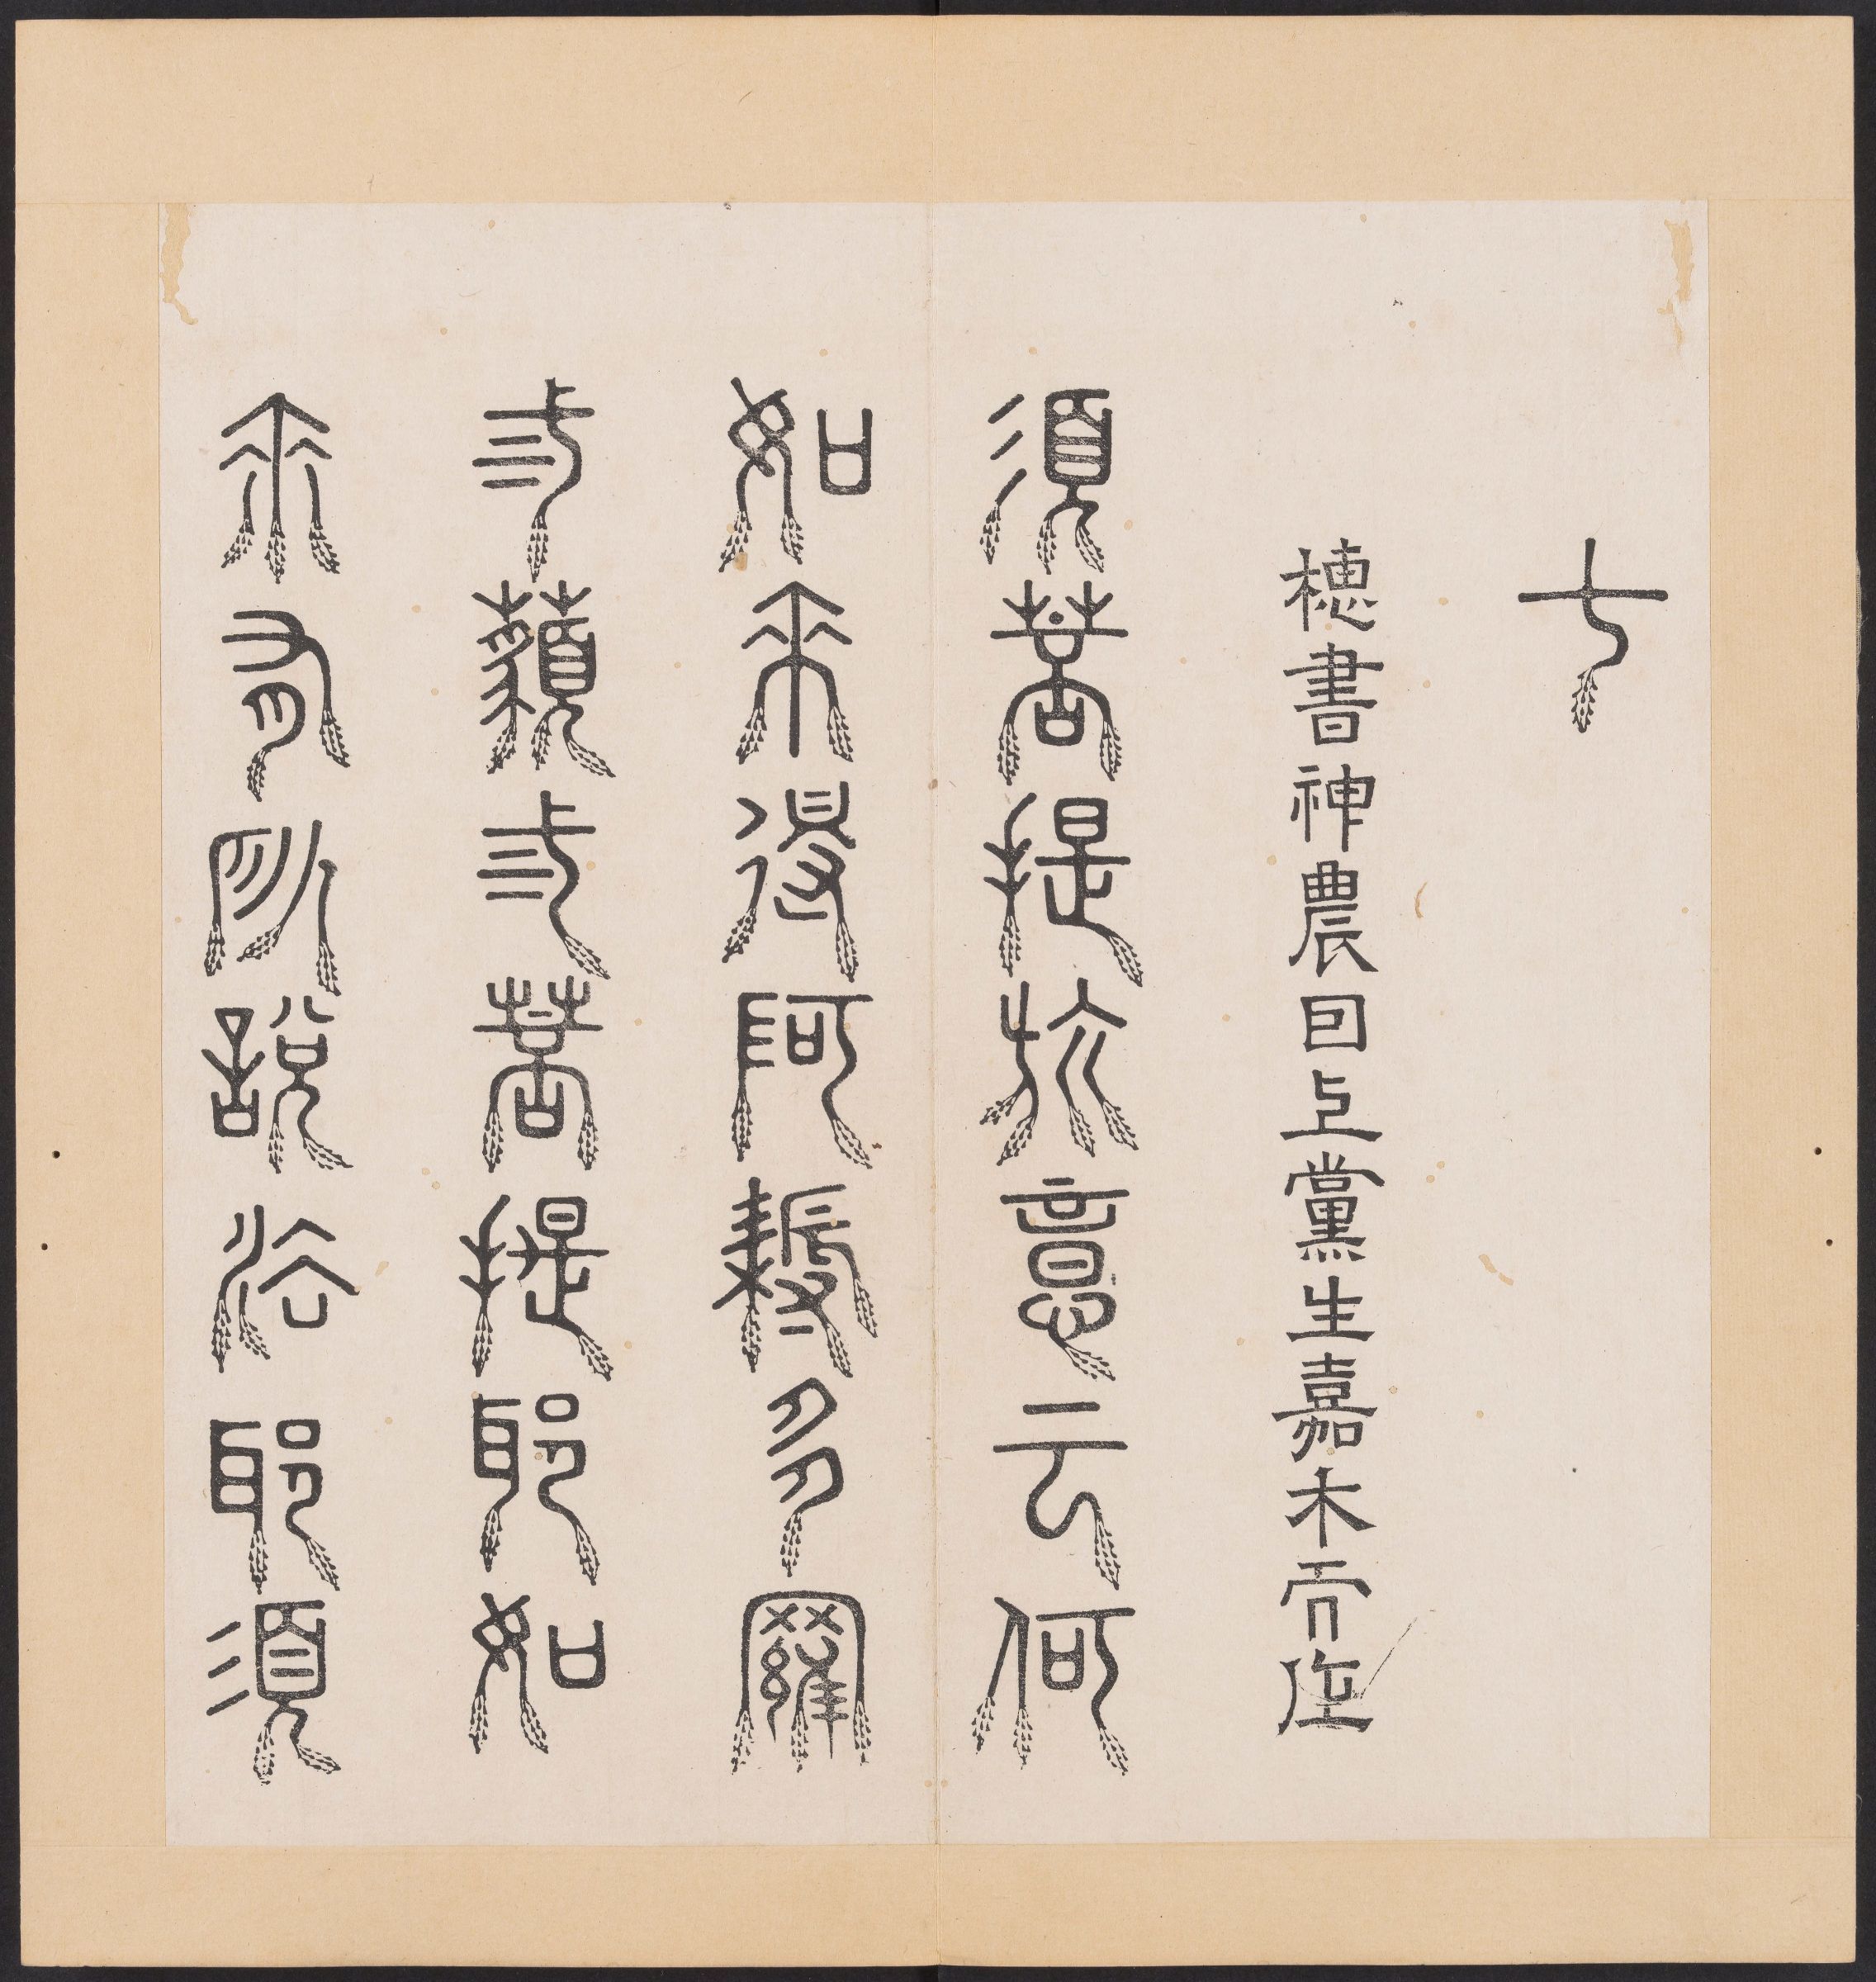 七
穗書神農因上黨生嘉禾而作
須菩提於意云何
如來得阿耨多羅
三藐三菩提耶如
來有所說法耶須